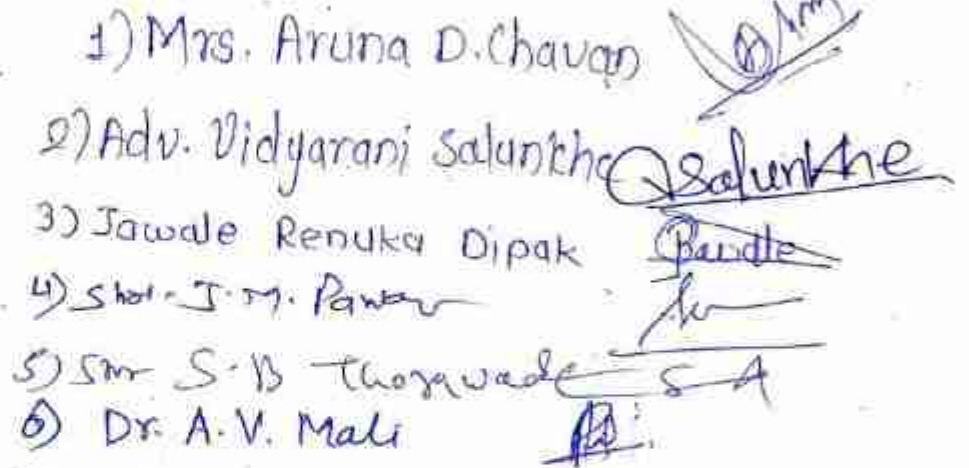 1) Mrs. Aruna D. Chavan
2) Adv. Vidyarani Salunkhe Salunkhe
3) Jawale Renuka Dipak
4) J. M. Pawar
5) S. B Thorawade
6) Dr. A. V. Mali